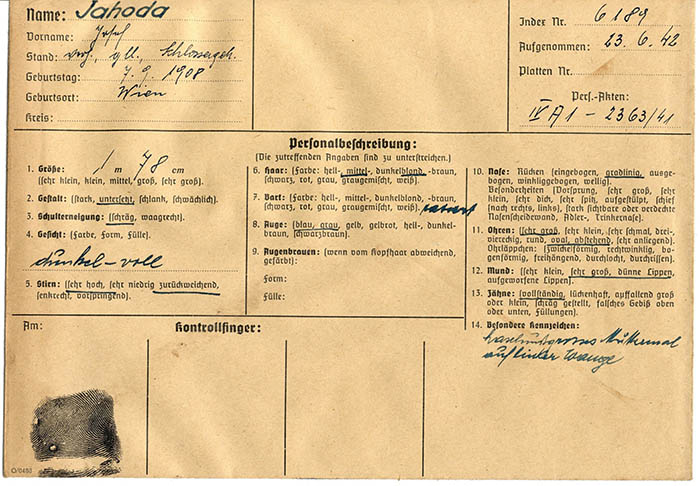 Name: Jahoda
Vorname: Josef
Stand: verh., gll., Schlossergeh.
Geburtstag: 7. 9. 1908
Geburtsort: Wien
Kreis:
Index Nr. 6189
Aufgenommen: 23. 6. 42
Platten Nr.
Pers.-Akten:
IV A 1 - 2363/41
Personalbeschreibung:
(Die zutreffenden Angaben sind zu unterstreichen.)
1. Größe: 1 m 78 cm
(sehr klein, klein, mittel, groß, sehr groß).
2. Gestalt: (stark, untersetzt, schlank, schwächlich).
3. Schulterneigung: (schräg, waagrecht).
4. Gesicht: (Farbe, Form, Fülle).
dunkel-voll
5. Stirn: (sehr hoch, sehr niedrig zurückweichend,
senkrecht, vorspringend).
6. Haar: (Farbe: hell-, mittel-, dunkelblond, -braun,
schwarz, rot, grau, graugemischt, weiß).
7. Bart: (Farbe: hell-, mittel-, dunkelblond, -braun,
schwarz, rot, grau, graugemischt, weiß). rasiert
8. Auge: (blau, grau, gelb, gelbrot, hell-, dunkel-
braun, schwarzbraun).
9. Augenbrauen: (wenn vom Kopfhaar abweichend,
gefärbt):
Form:
Fülle:
10. Nase: Rücken (eingebogen, gradlinig, ausge-
bogen, winkliggebogen, wellig).
Besonderheiten (Vorsprung, sehr groß, sehr
klein, sehr dick, sehr spitz, aufgestülpt, schief
(nach rechts, links), stark sichtbare oder verdeckte
Nasenscheidewand, Adler-, Trinkernase).
11. Ohren: (sehr groß, sehr klein, sehr schmal, drei-
viereckig, rund, oval, abstehend, sehr anliegend).
Ohrläppchen: (zwickelförmig, rechtwinklig, bo-
genförmig, freihängend, durchlocht, durchrissen).
12. Mund: (sehr klein, sehr groß, dünne Lippen,
aufgeworfene Lippen).
13. Zähne: (vollständig, lückenhaft, auffallend groß
oder klein, schräg gestellt, falsches Gebiß oben
oder unten, Füllungen).
14. Besondere Kennzeichen:
Muttermal
auf linker Wange
Am:
Kontrollfinger:
O/0488